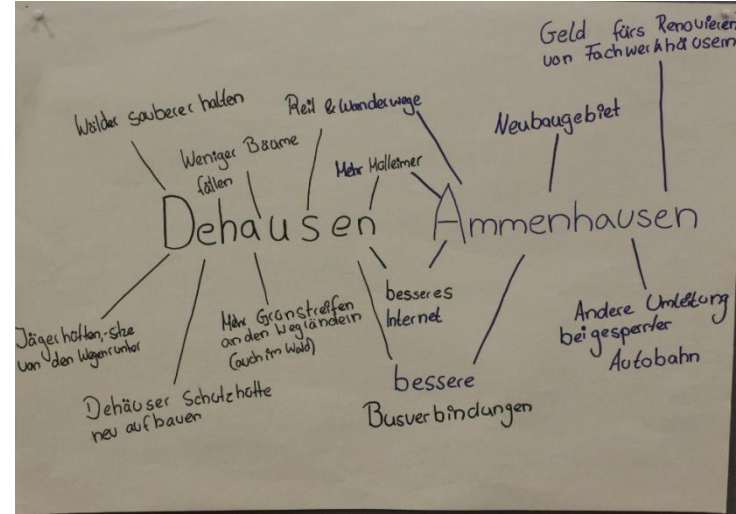 Geld fürs Renovieren
von Fachwerkhäusern
Wälder sauberer halten
Reit & Wanderwege
Neubaugebiet
Weniger Bäume
fällen
Mehr Mülleimer
Dehausen
Ammenhausen
Jägerhütten,-sitze
von den Wegen runter
Mehr Grünstreifen
an den Wegrändern
(auch im Wald)
besseres
Internet
Andere Umleitung
bei gesperrter
Autobahn
Dehäuser Schutzhütte
neu aufbauen
bessere
Busverbindungen